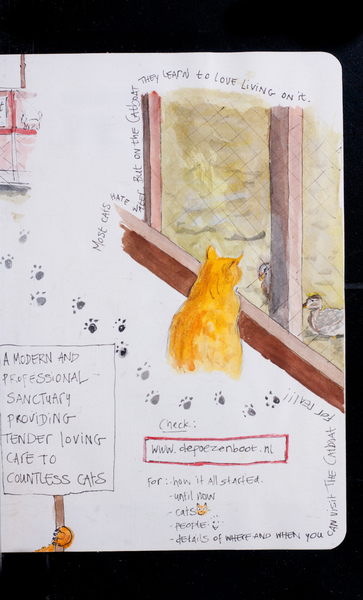 MOST CATS HATE WATER BUT ON THE CATBOAT THEY LEARN TO LOVE LIVING ON it.
A MODERN AND
PROFESSIONAL
SANCTUARY
PROVIDING
TENDER LOVING
CARE TO
COUNTLESS CATS
Check:
www.depoezenboot.nl
for: - how it all started.
- until now
- cats
- people
- details of WHERE AND WHEN YOU CAN VISIT THE CATBOAT FOR REAL!!!